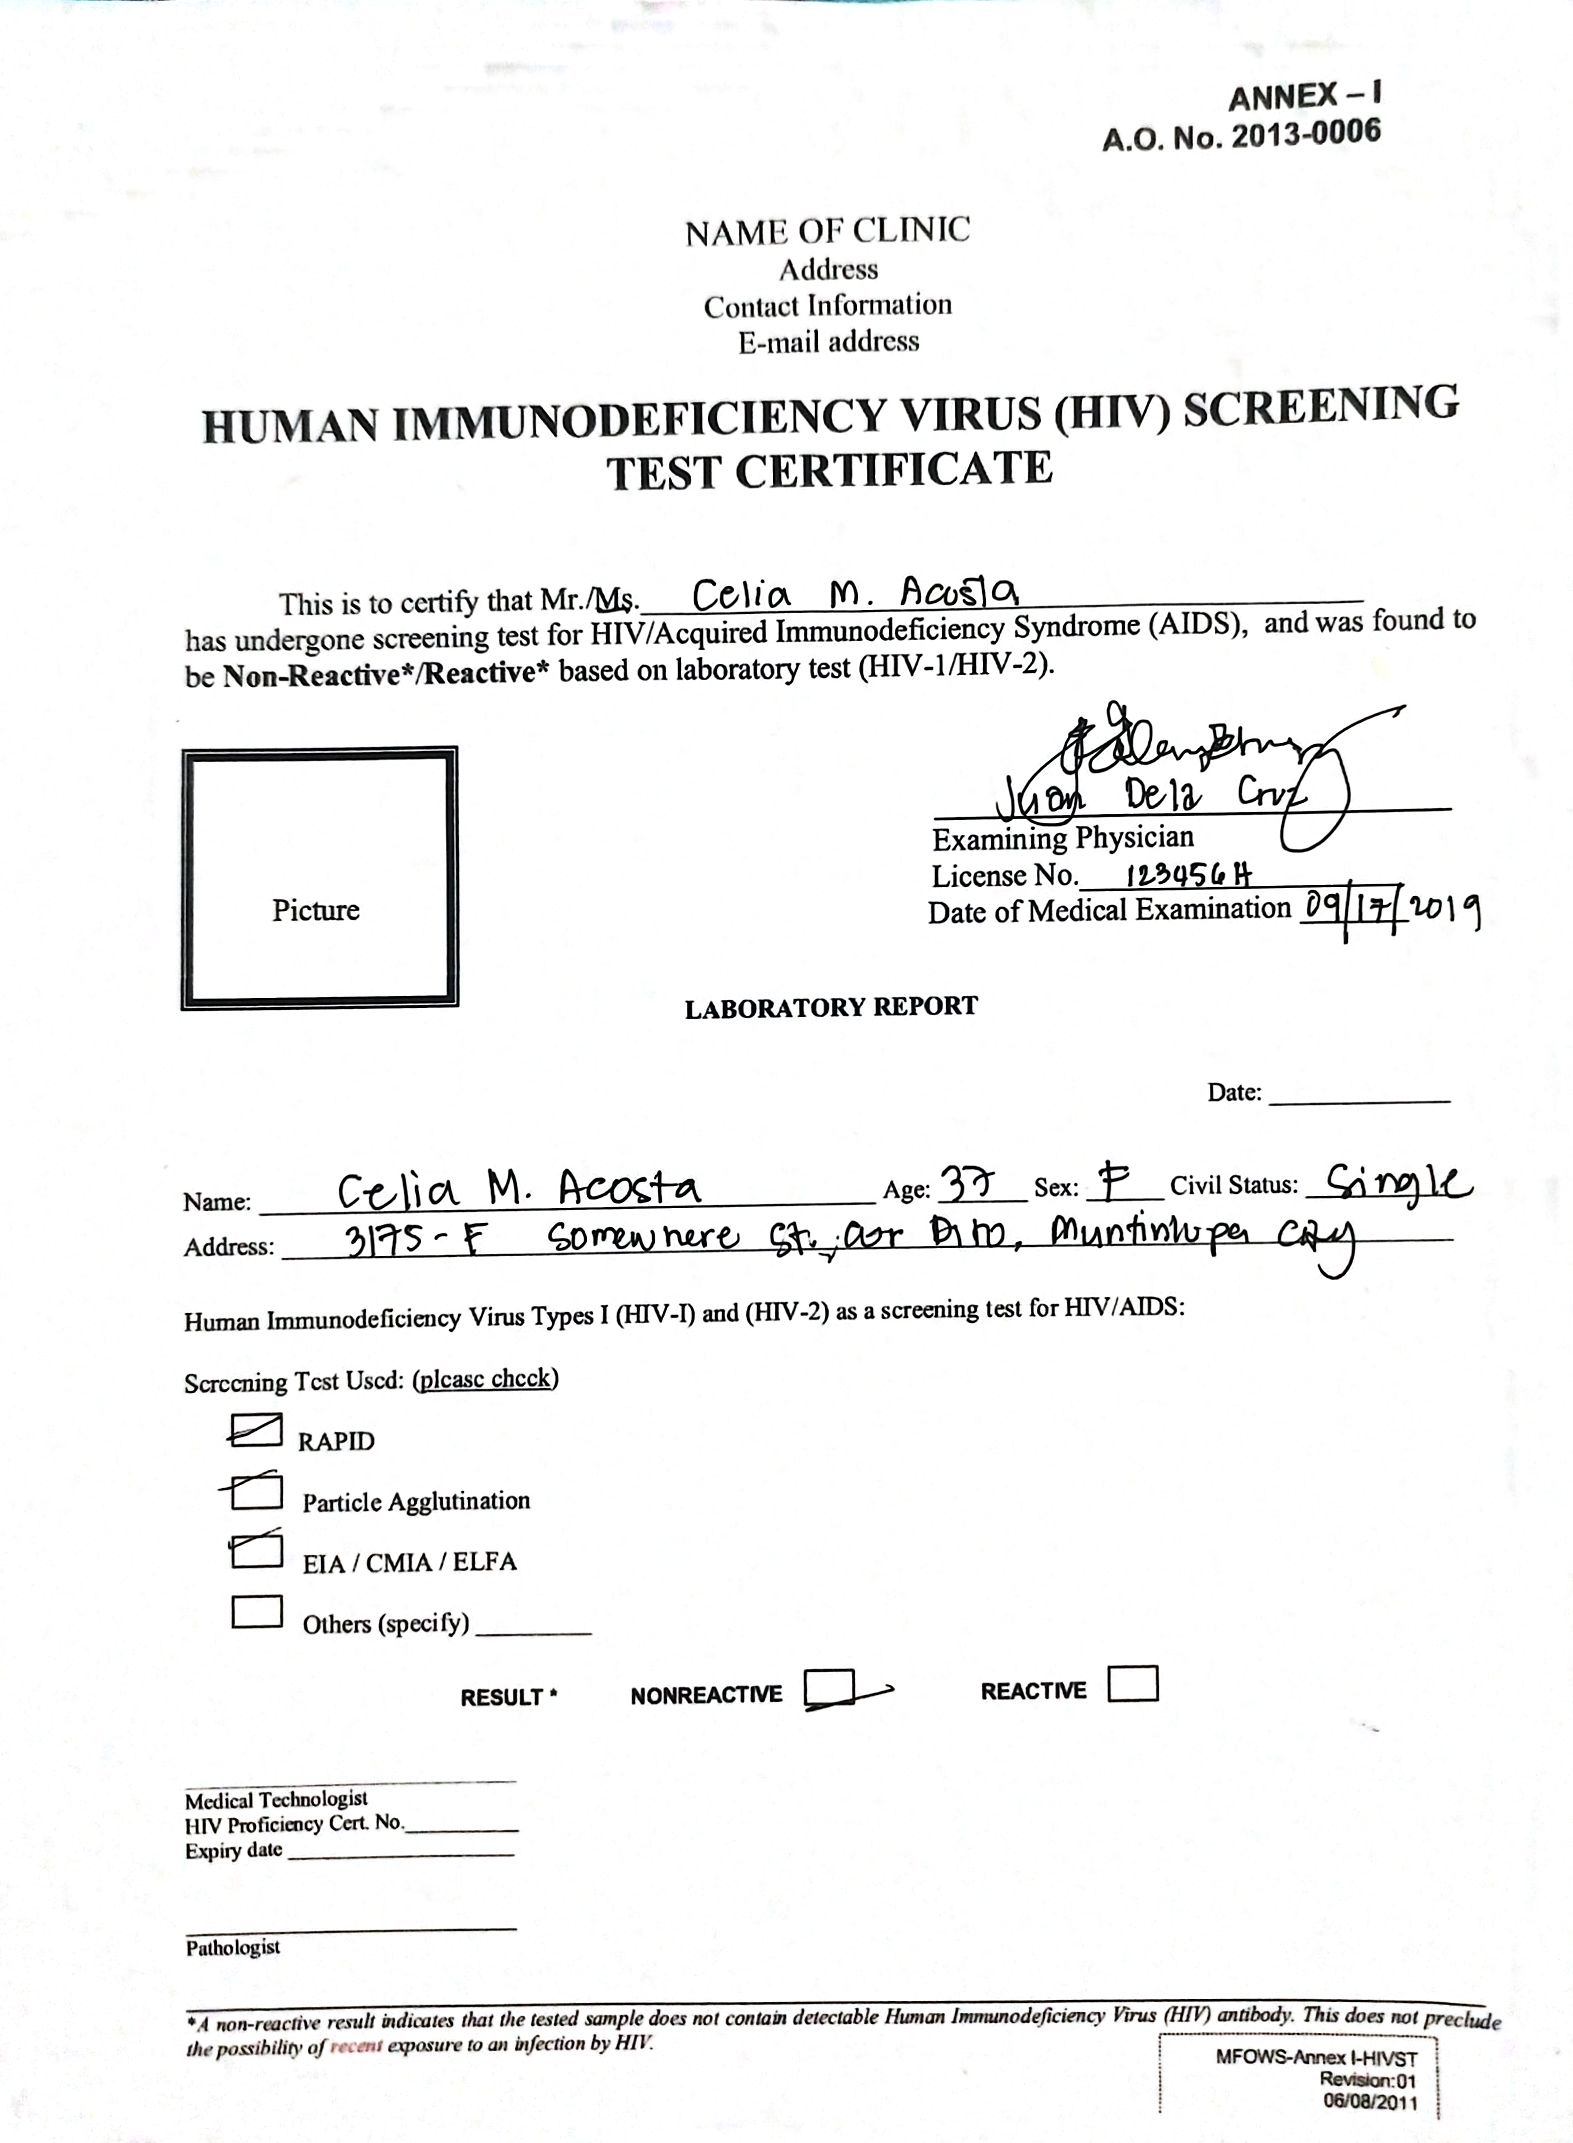 ANNEX – I
A.O. No. 2013-0006
NAME OF CLINIC
Address
Contact Information
E-mail address
HUMAN IMMUNODEFICIENCY VIRUS (HIV) SCREENING
TEST CERTIFICATE
This is to certify that Mr./Ms. Celia M. Acosta
has undergone screening test for HIV/Acquired Immunodeficiency Syndrome (AIDS), and was found to
be Non-Reactive*/Reactive* based on laboratory test (HIV-1/HIV-2).
Juan Dela Cruz
Examining Physician
License No. 123456H
Date of Medical Examination 09/17/2019
Picture
LABORATORY REPORT
Date:
Name: Celia M. Acosta Age: 37 Sex: F Civil Status: Single
Address: 3175-F Somewhere St., Muntinlupa City
Human Immunodeficiency Virus Types I (HIV-I) and (HIV-2) as a screening test for HIV/AIDS:
Screening Test Used: (please check)
RAPID
Particle Agglutination
EIA / CMIA / ELFA
Others (specify)
RESULT * NONREACTIVE REACTIVE
Medical Technologist
HIV Proficiency Cert. No.
Expiry date
Pathologist
*A non-reactive result indicates that the tested sample does not contain detectable Human Immunodeficiency Virus (HIV) antibody. This does not preclude
the possibility of recent exposure to an infection by HIV.
MFOWS-Annex I-HIVST
Revision:01
06/08/2011